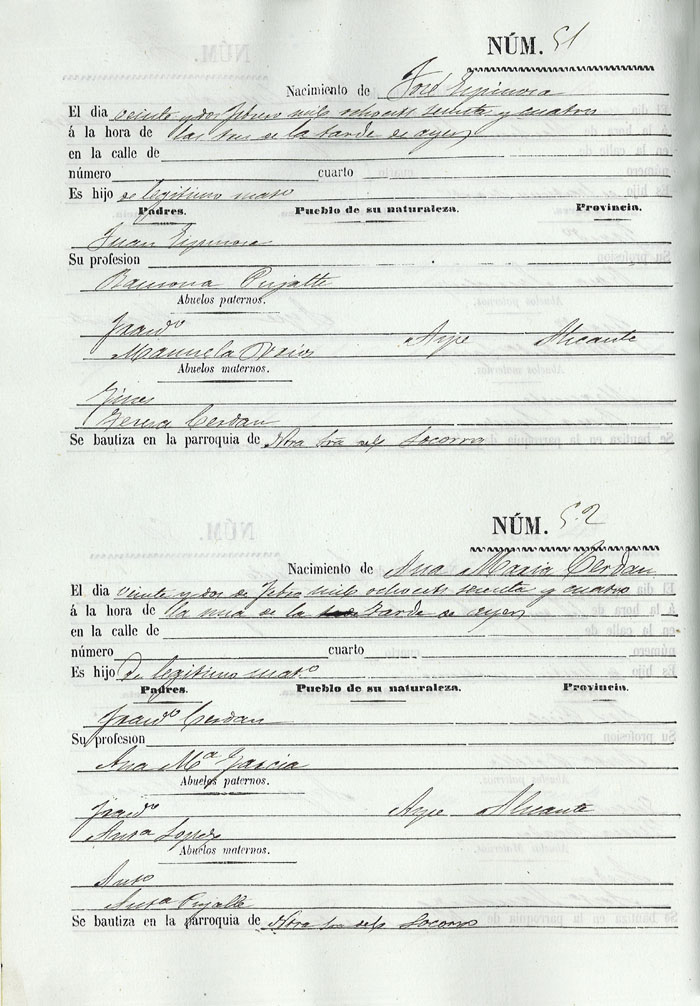 NÚM. 51
Nacimiento de José Espinosa
El dia veinte y dos febrero mil ochocts sesenta y cuatro
á la hora de las tres de la tarde de ayer
en la calle de
número cuarto
Es hijo de legitimo mato
Padres. Pueblo de su naturaleza. Provincia.
Juan Espinosa
Su profesion
Ramona Pujalte
Abuelos paternos.
Franco Aspe Alicante
Manuela
Abuelos maternos.
Gines
Teresa Cerdan
Se bautiza en la parroquia de Ntra Sra del Socorro
NÚM. 52
Nacimiento de Ana Maria Cerdan
El dia veinte y dos de Febro mil ochocts sesenta y cuatro
á la hora de la una de la tarde de ayer
en la calle de
número cuarto
Es hijo de legitimo mato
Padres. Pueblo de su naturaleza. Provincia.
Franco Cerdan
Su profesion
Ana Ma Garcia
Abuelos paternos.
Franco Aspe Alicante
Anta Lopez
Abuelos maternos.
Anto
Anta Pujalte
Se bautiza en la parroquia de Ntra Sra del Socorro